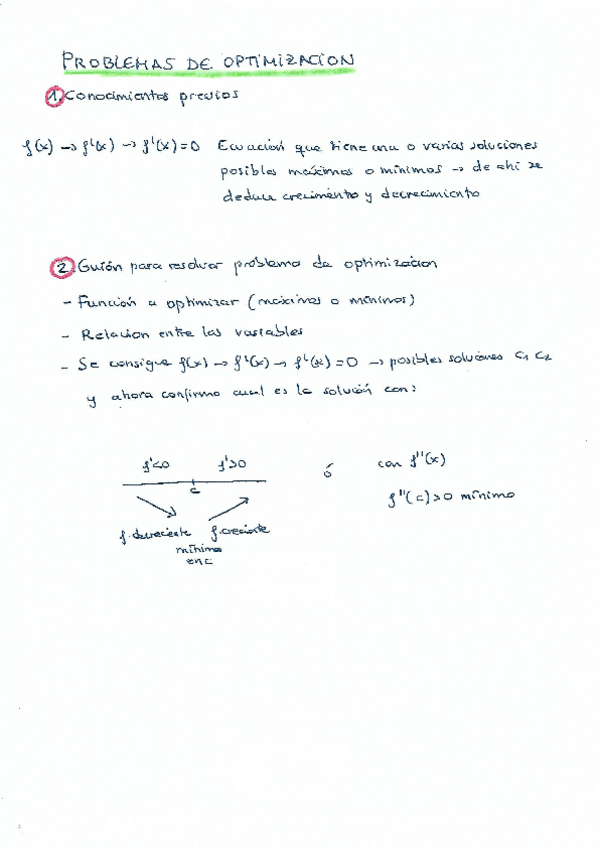 PROBLEMAS DE OPTIMIZACION
1. Conocimientos previos
f(x) → f'(x) → f'(x) = 0 Ecuación que tiene una o varias soluciones
posibles máximos o mínimos → de ahí se
deduce crecimiento y decrecimiento
2. Guión para resolver problema de optimizacion
- Función a optimizar (máximos o mínimos)
- Relacion entre las variables
- Se consigue f(x) → f'(x) → f'(x) = 0 → posibles soluciones c1 c2
y ahora confirmo cual es la solución con:
f'<0 f'>0 ó con f''(x)
c
f''(c)>0 mínimo
f. decreciente f. creciente
mínimo
en c